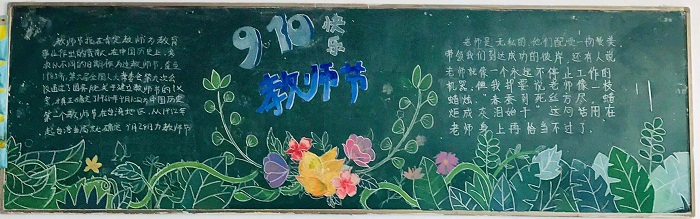 教师节旨在肯定教师为教育
事业作出的贡献。在中国历史上,多
次以不同的日期作为过教师节。直至
1985年,第六届全国人大常委会第九次会
议通过了国务院关于建立教师节的议
案,真正确定了1985年9月10日为中国历史
第一个教师节。在台湾地区,从1952年
起台湾当局就确定9月28日为教师节
9.10
快乐
教师节
老师是无私的,他们配受一切赞美。
带领我们到达成功的彼岸。还有人说,
老师就像一个永远不停止工作的
机器。但我却要说老师像一枝
蜡烛。"春蚕到死丝方尽,蜡
炬成灰泪始干。"这句话用在
老师身上再恰当不过了。